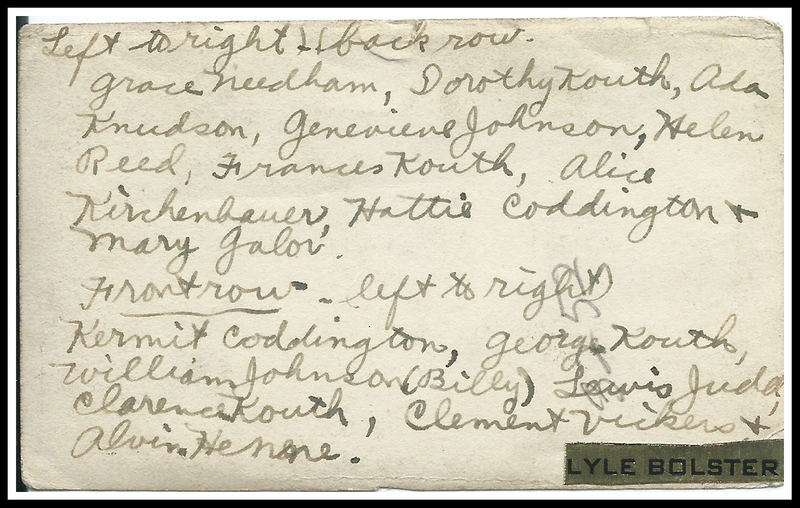 Left to right :: (back row.
Grace Needham, Dorothy Kouth, Ada
Knudson, Genevieve Johnson, Helen
Reed, Frances Kouth, Alice
Kirchenbauer, Hattie Coddington +
Mary Galov.
Front row - left to right)
Kermit Coddington, George Kouth,
William Johnson (Billy) Lewis Judd,
Clarence Kouth, Clement Vickers +
Alvin Henne.
LYLE BOLSTER